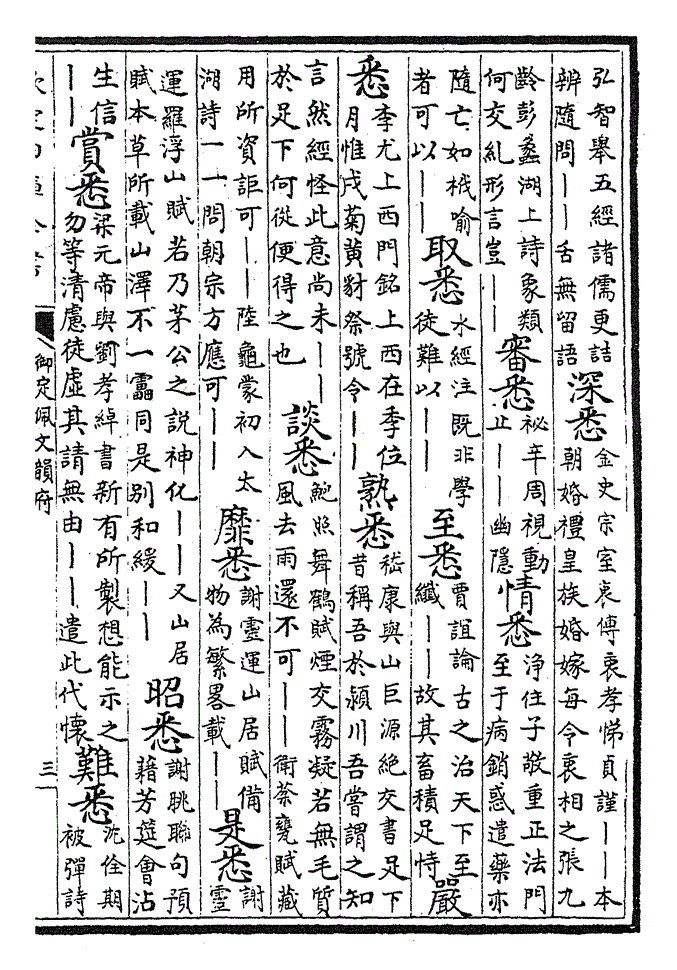 弘智舉五經諸儒更詰
辨隨問――舌無留語
深悉
金史宗室㐮傅㐮孝悌貞謹――本
朝婚禮皇族婚嫁每令㐮相之張九
齡彭蠡湖上詩象類
何交糺形言豈――
審悉
祕辛周視動
止――幽隱
情悉
淨住子敬重正法門
至于病銷惑遣藥亦
隨亡如栰喻
者可以――
取悉
水經注既非學
徒難以――
至悉
賈誼論古之治天下至
纖――故其畜積足恃
嚴
悉
李尤上西門銘上西在季位
月惟戌菊黄豺祭號令――
熟悉
嵇康與山巨源絶交書足下
昔稱吾於潁川吾嘗謂之知
言然經怪此意尚未――
於足下何從便得之也
談悉
鮑照舞鶴賦煙交霧凝若無毛質
風去雨還不可――衛茶甕賦藏
用所資詎可――陸龜蒙初入太
湖詩一一問朝宗方應可――
靡悉
謝靈運山居賦備
物為繁畧載――
是悉
謝
靈
運羅浮山賦若乃茅公之説神化――又山居
賦本草所載山澤不一靁同是别和緩――
昭悉
謝朓聯句預
藉芳筵會沾
生信
――
賞悉
梁元帝與劉孝綽書新有所製想能示之
勿等清慮徒虛其請無由――遣此代懷
難悉
沈佺期
被彈詩
御定佩文韻府
三